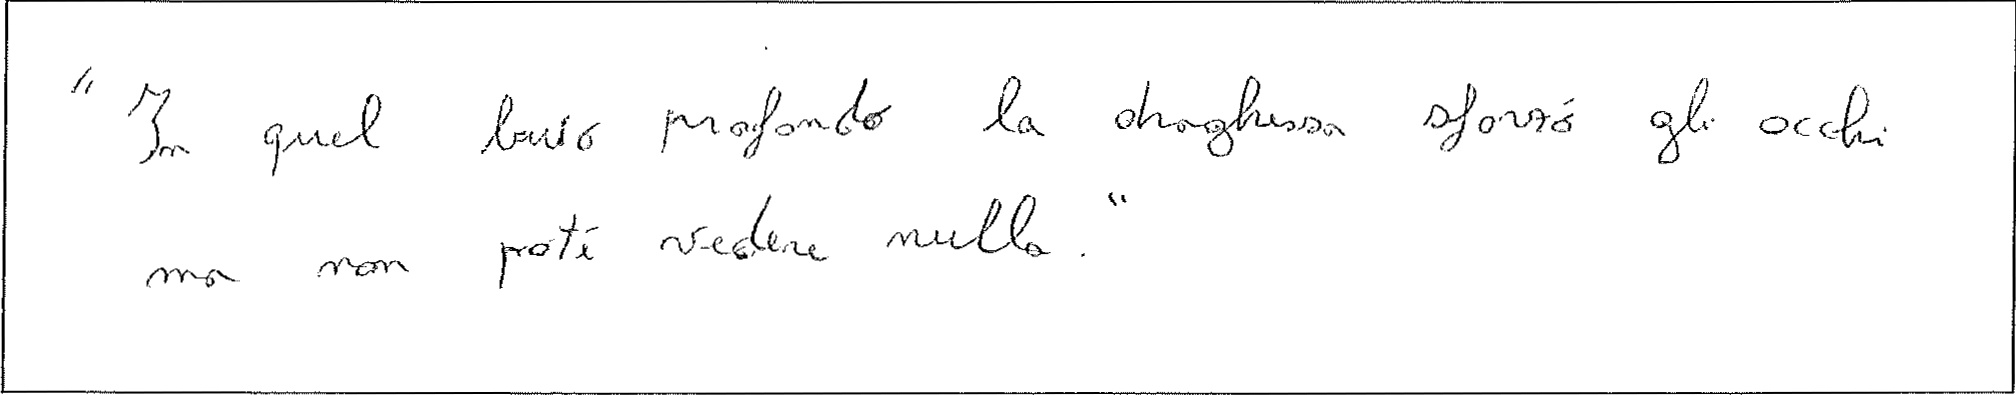 "In quel buio profondo la draghessa sforzó gli occhi
ma non poté vedere nulla."